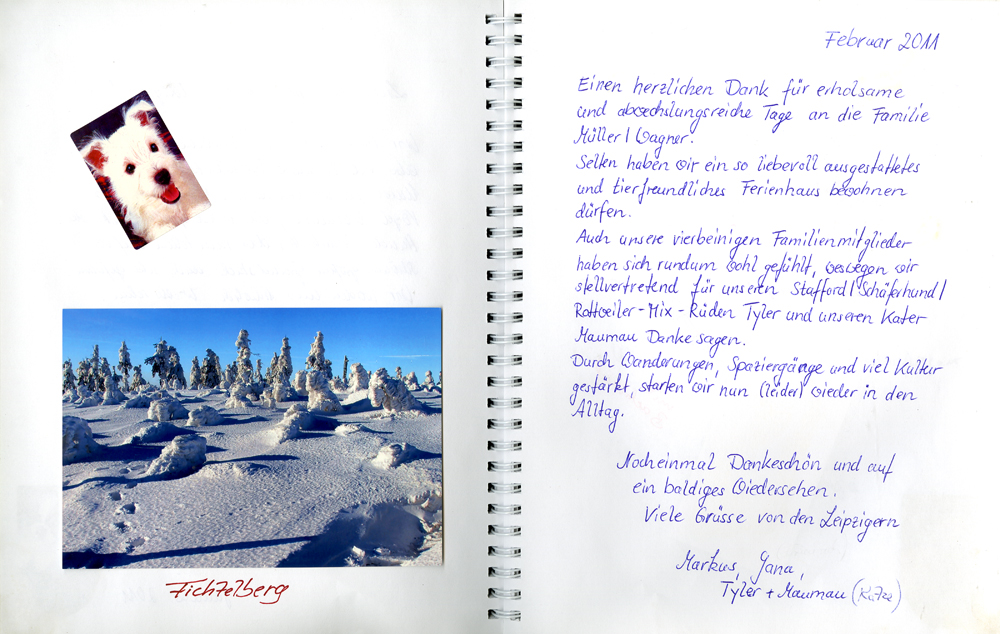 Fichtelberg
Februar 2011
Einen herzlichen Dank für erholsame
und abwechslungsreiche Tage an die Familie
Müller/Wagner.
Selten haben wir ein so liebevoll ausgestattetes
und tierfreundliches Ferienhaus bewohnen
dürfen.
Auch unsere vierbeinigen Familienmitglieder
haben sich rundum wohl gefühlt, weswegen wir
stellvertretend für unseren Stafford/Schäferhund/
Rottweiler-Mix-Rüden Tyler und unseren Kater
Maumau Danke sagen.
Durch Wanderungen, Spaziergänge und viel Kultur
gestärkt, starten wir nun (leider) wieder in den
Alltag.
Nocheinmal Dankeschön und auf
ein baldiges Wiedersehen.
Viele Grüsse von den Leipzigern
Markus, Yana,
Tyler + Maumau (Katze)